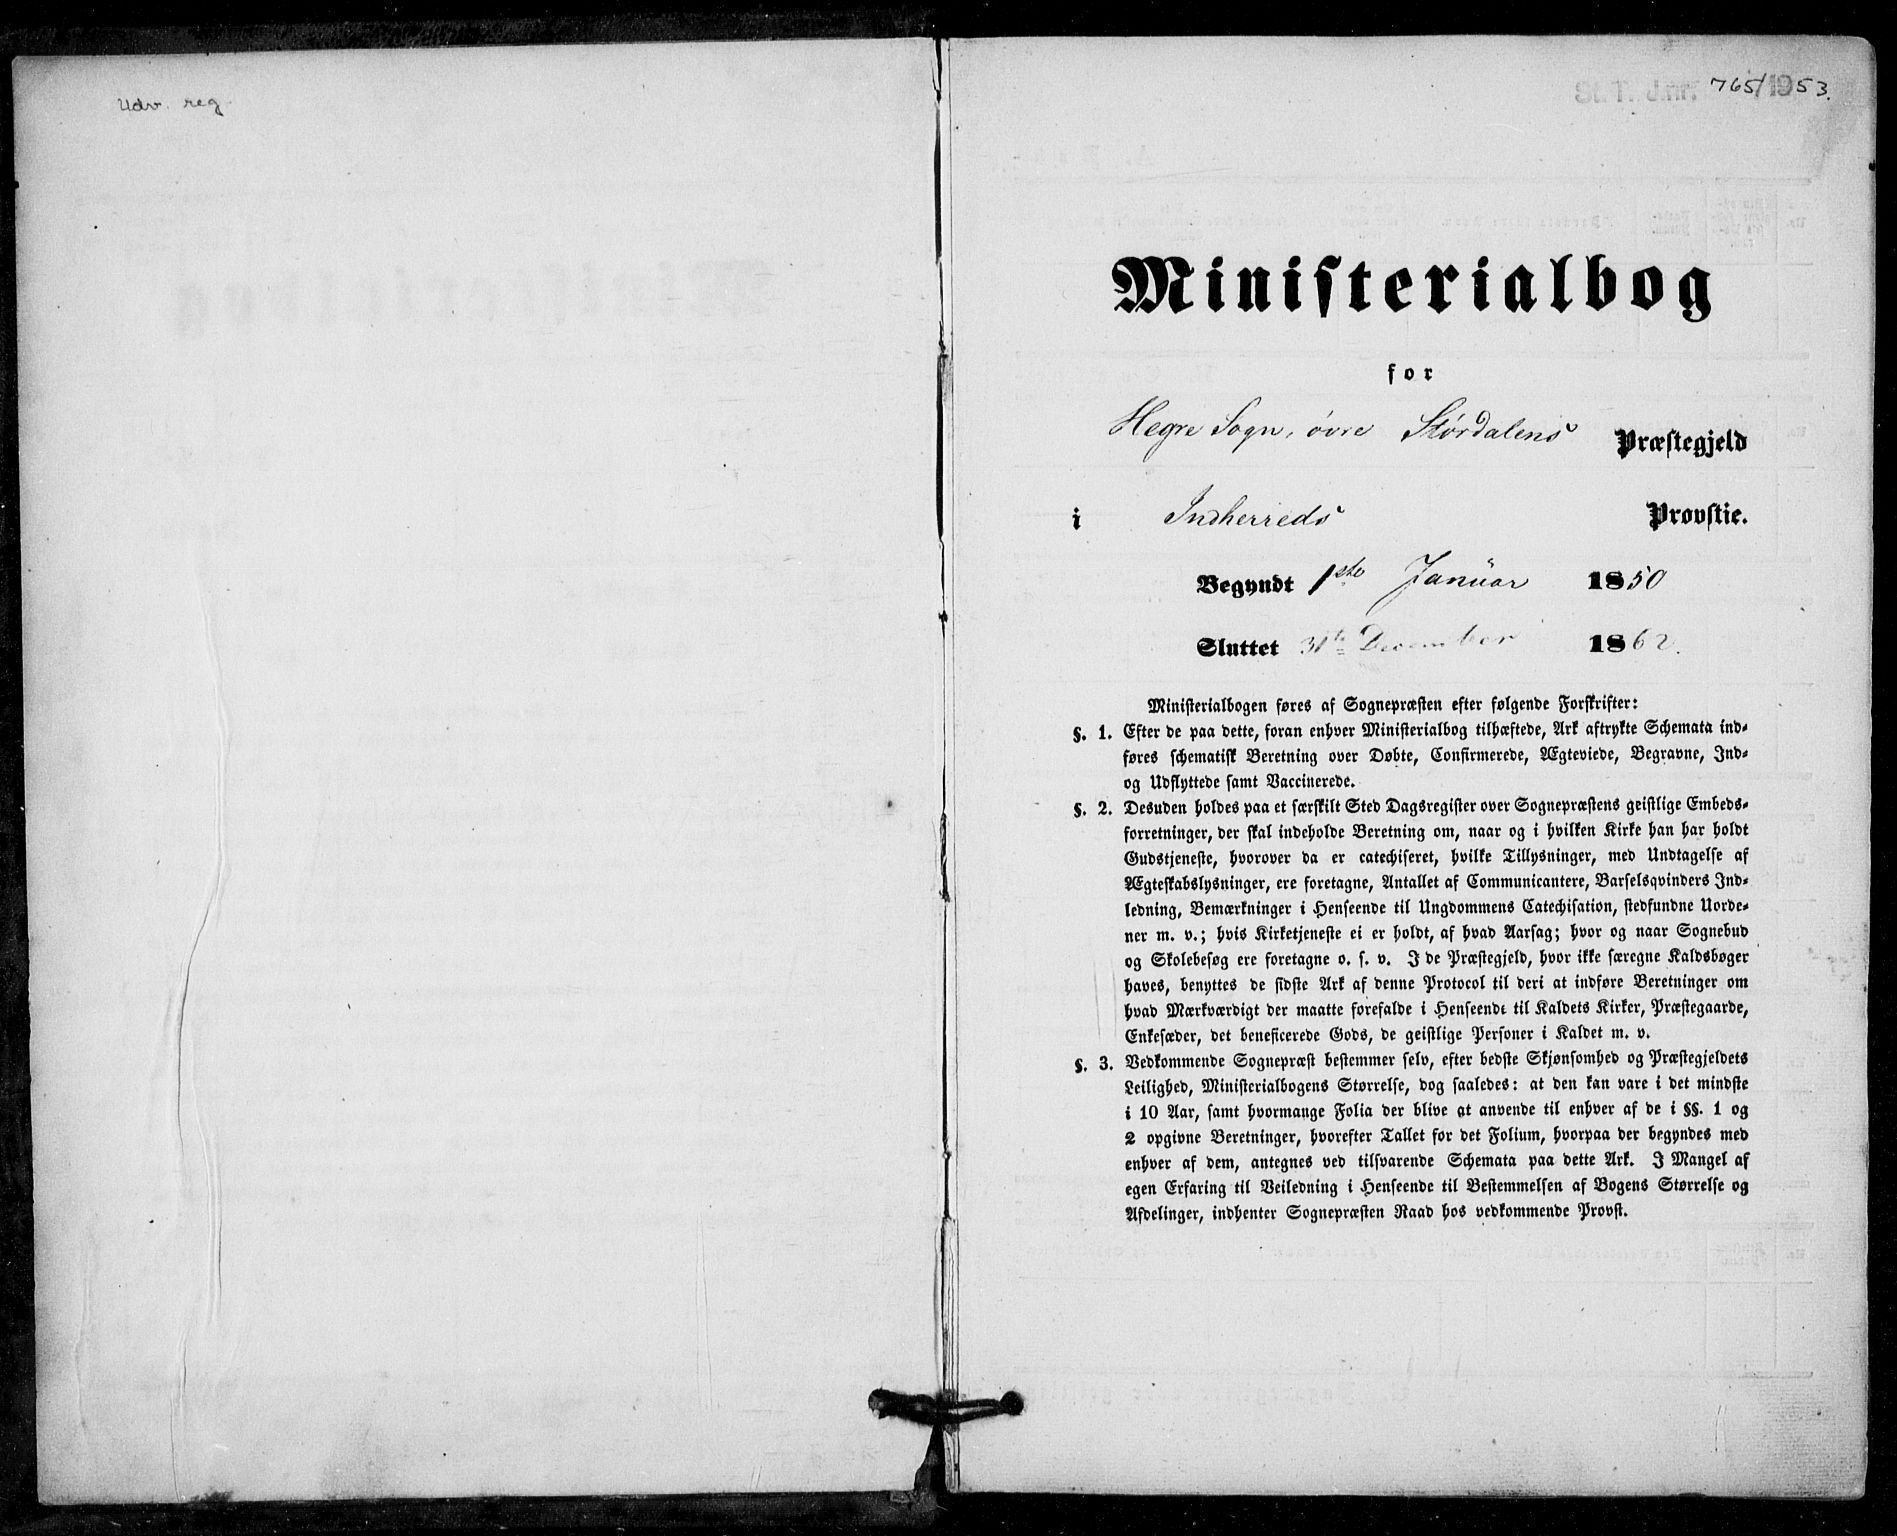 Udv. reg
St. T. J.nr. 765/1953.
Ministerialbog
for
Hegre Sogn, øvre Størdalens Præstegjeld
i Indherreds Provstie.
Begyndt 1ste Janüar 1850
Sluttet 31te December 1862.
Ministerialbogen føres af Sognepræsten efter følgende Forskrifter:
§. 1. Efter de paa dette, foran enhver Ministerialbog tilhæftede, Ark aftrykte Schemata ind-
føres schematisk Beretning over Døbte, Confirmerede, Ægteviede, Begravne, Ind-
og Udflyttede samt Vaccinerede.
§. 2. Desuden holdes paa et særskilt Sted Dagsregister over Sognepræstens geistlige Embeds-
forretninger, der skal indeholde Beretning om, naar og i hvilken Kirke han har holdt
Gudstjeneste, hvorover da er catechiseret, hvilke Tillysninger, med Undtagelse af
Ægteskabslysninger, ere foretagne, Antallet af Communicantere, Barselsqvinders Ind-
ledning, Bemærkninger i Henseende til Ungdommens Catechisation, stedfundne Uorde-
ner m. v.; hvis Kirketjeneste ei er holdt, af hvad Aarsag; hvor og naar Sognebud
og Skolebesøg ere foretagne o. s. v. I de Præstegjeld, hvor ikke særegne Kaldsbøger
haves, benyttes de sidste Ark af denne Protocol til deri at indføre Beretninger om
hvad Mærkværdigt der maatte forefalde i Henseende til Kaldets Kirker, Præstegaarde,
Enkesæder, det beneficerede Gods, de geistlige Personer i Kaldet m. v.
§. 3. Vedkommende Sognepræst bestemmer selv, efter bedste Skjønsomhed og Præstegjeldets
Leilighed, Ministerialbogens Størrelse, dog saaledes: at den kan vare i det mindste
i 10 Aar, samt hvormange Folia der blive at anvende til enhver af de i §§. 1 og
2 opgivne Beretninger, hvorefter Tallet for det Folium, hvorpaa der begyndes med
enhver af dem, antegnes ved tilsvarende Schemata paa dette Ark. I Mangel af
egen Erfaring til Veiledning i Henseende til Bestemmelsen af Bogens Størrelse og
Afdelinger, indhenter Sognepræsten Raad hos vedkommende Provst.